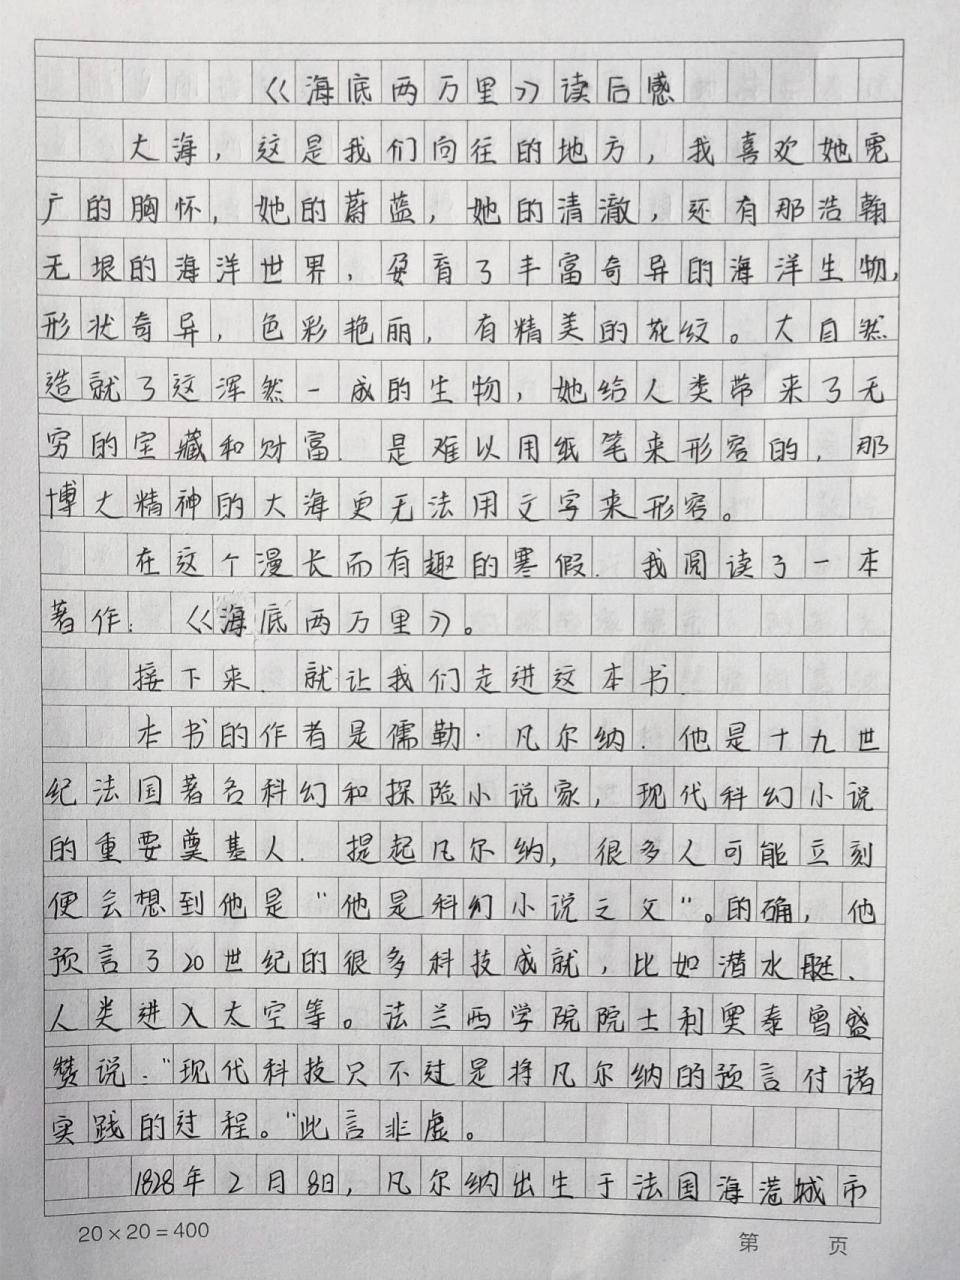 《海底两万里》读后感
大海，这是我们向往的地方，我喜欢她宽
广的胸怀，她的蔚蓝，她的清澈，还有那浩翰
无垠的海洋世界，孕育了丰富奇异的海洋生物，
形状奇异，色彩艳丽，有精美的花纹。大自然
造就了这浑然一成的生物，她给人类带来了无
穷的宝藏和财富．是难以用纸笔来形容的，那
博大精神的大海更无法用文字来形容。
在这个漫长而有趣的寒假．我阅读了一本
著作：《海底两万里》。
接下来．就让我们走进这本书．
本书的作者是儒勒·凡尔纳．他是十九世
纪法国著名科幻和探险小说家，现代科幻小说
的重要奠基人．提起凡尔纳，很多人可能立刻
便会想到他是“他是科幻小说之父”。的确，他
预言了20世纪的很多科技成就，比如潜水艇、
人类进入太空等。法兰西学院院士利奥泰曾盛
赞说：“现代科技只不过是将凡尔纳的预言付诸
实践的过程。”此言非虚。
1828年2月8日，凡尔纳出生于法国海港城市
20×20=400
第 页